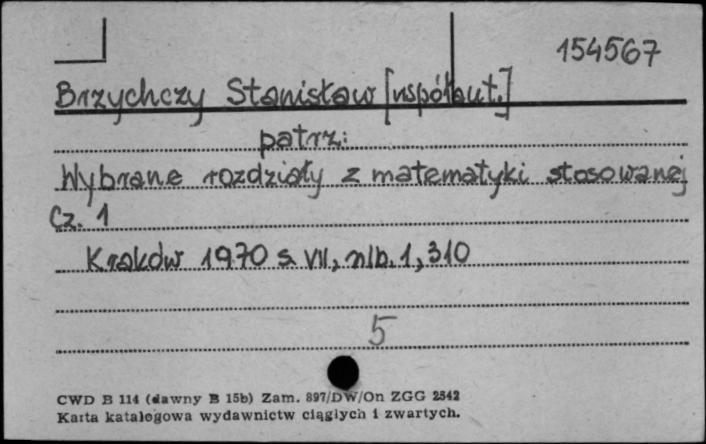 154567
Brzychczy Stanisław [współaut.]
patrz:
Wybrane rozdziały z matematyki stosowanej
Cz. 1
Kraków 1970 s. VII, nlb. 1, 310
5
CWD B 114 (dawny B 15b) Zam. 897/DW/On ZGG 2542
Karta katalogowa wydawnictw ciągłych i zwartych.